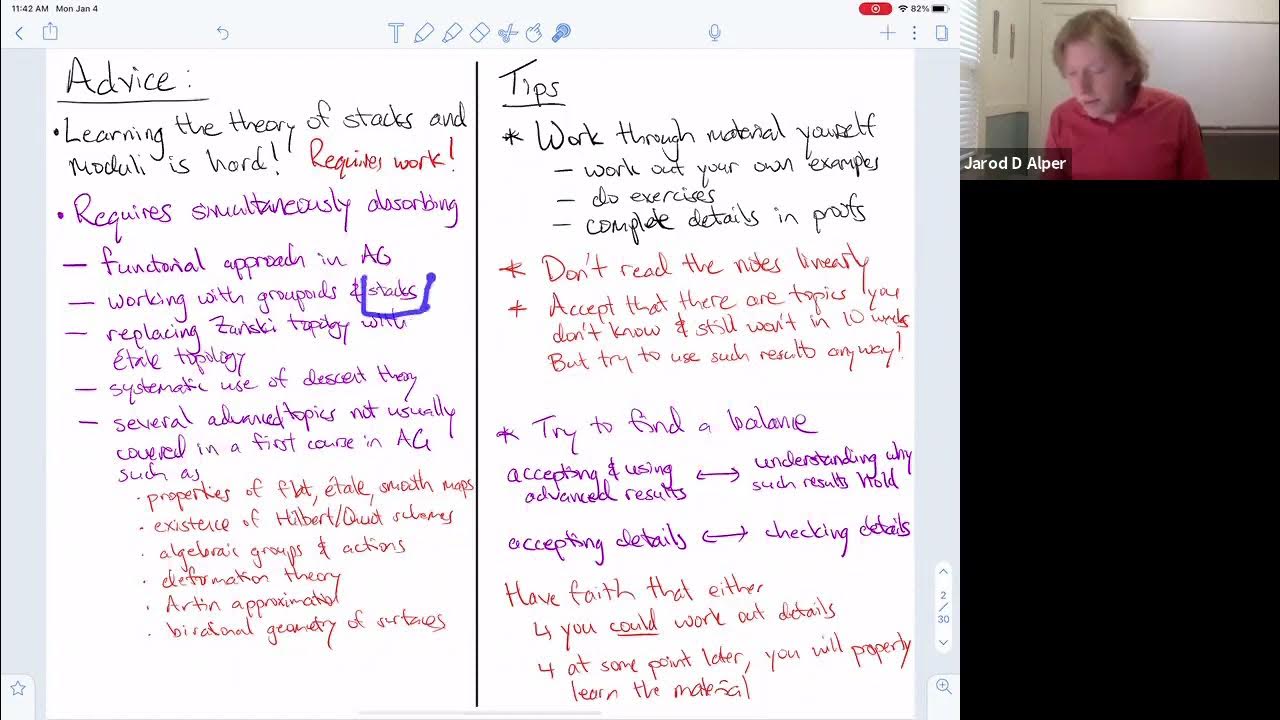 11:42 AM Mon Jan 4
82%
Advice:
• Learning the theory of stacks and
moduli is hard! Requires work!
• Requires simultaneously absorbing
— functorial approach in AG
— working with groupoids & stacks
— replacing Zariski topology with
étale topology
— systematic use of descent theory
— several advanced topics not usually
covered in a first course in AG
such as
· properties of flat, étale, smooth maps
· existence of Hilbert/Quot schemes
· algebraic groups & actions
· deformation theory
· Artin approximation
· birational geometry of surfaces
Tips
* Work through material yourself
— work out your own examples
— do exercises
— complete details in proofs
* Don't read the notes linearly
* Accept that there are topics you
don't know & still won't in 10 weeks
But try to use such results anyway!
* Try to find a balance
accepting & using ⟷ understanding why
advanced results such results hold
accepting details ⟷ checking details
Have faith that either
↳ you could work out details
↳ at some point later, you will properly
learn the material
2
/
30
Jarod D Alper